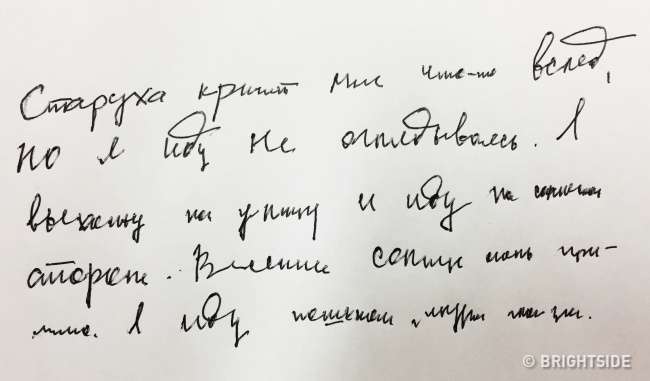 Старуха кричит мне что-то вслед,
но я иду не оглядываясь. Я
выхожу на улицу и иду по солнечной
стороне. Весеннее солнце очень при-
ятно. Я иду пешком, щурю глаза.
© BRIGHTSIDE